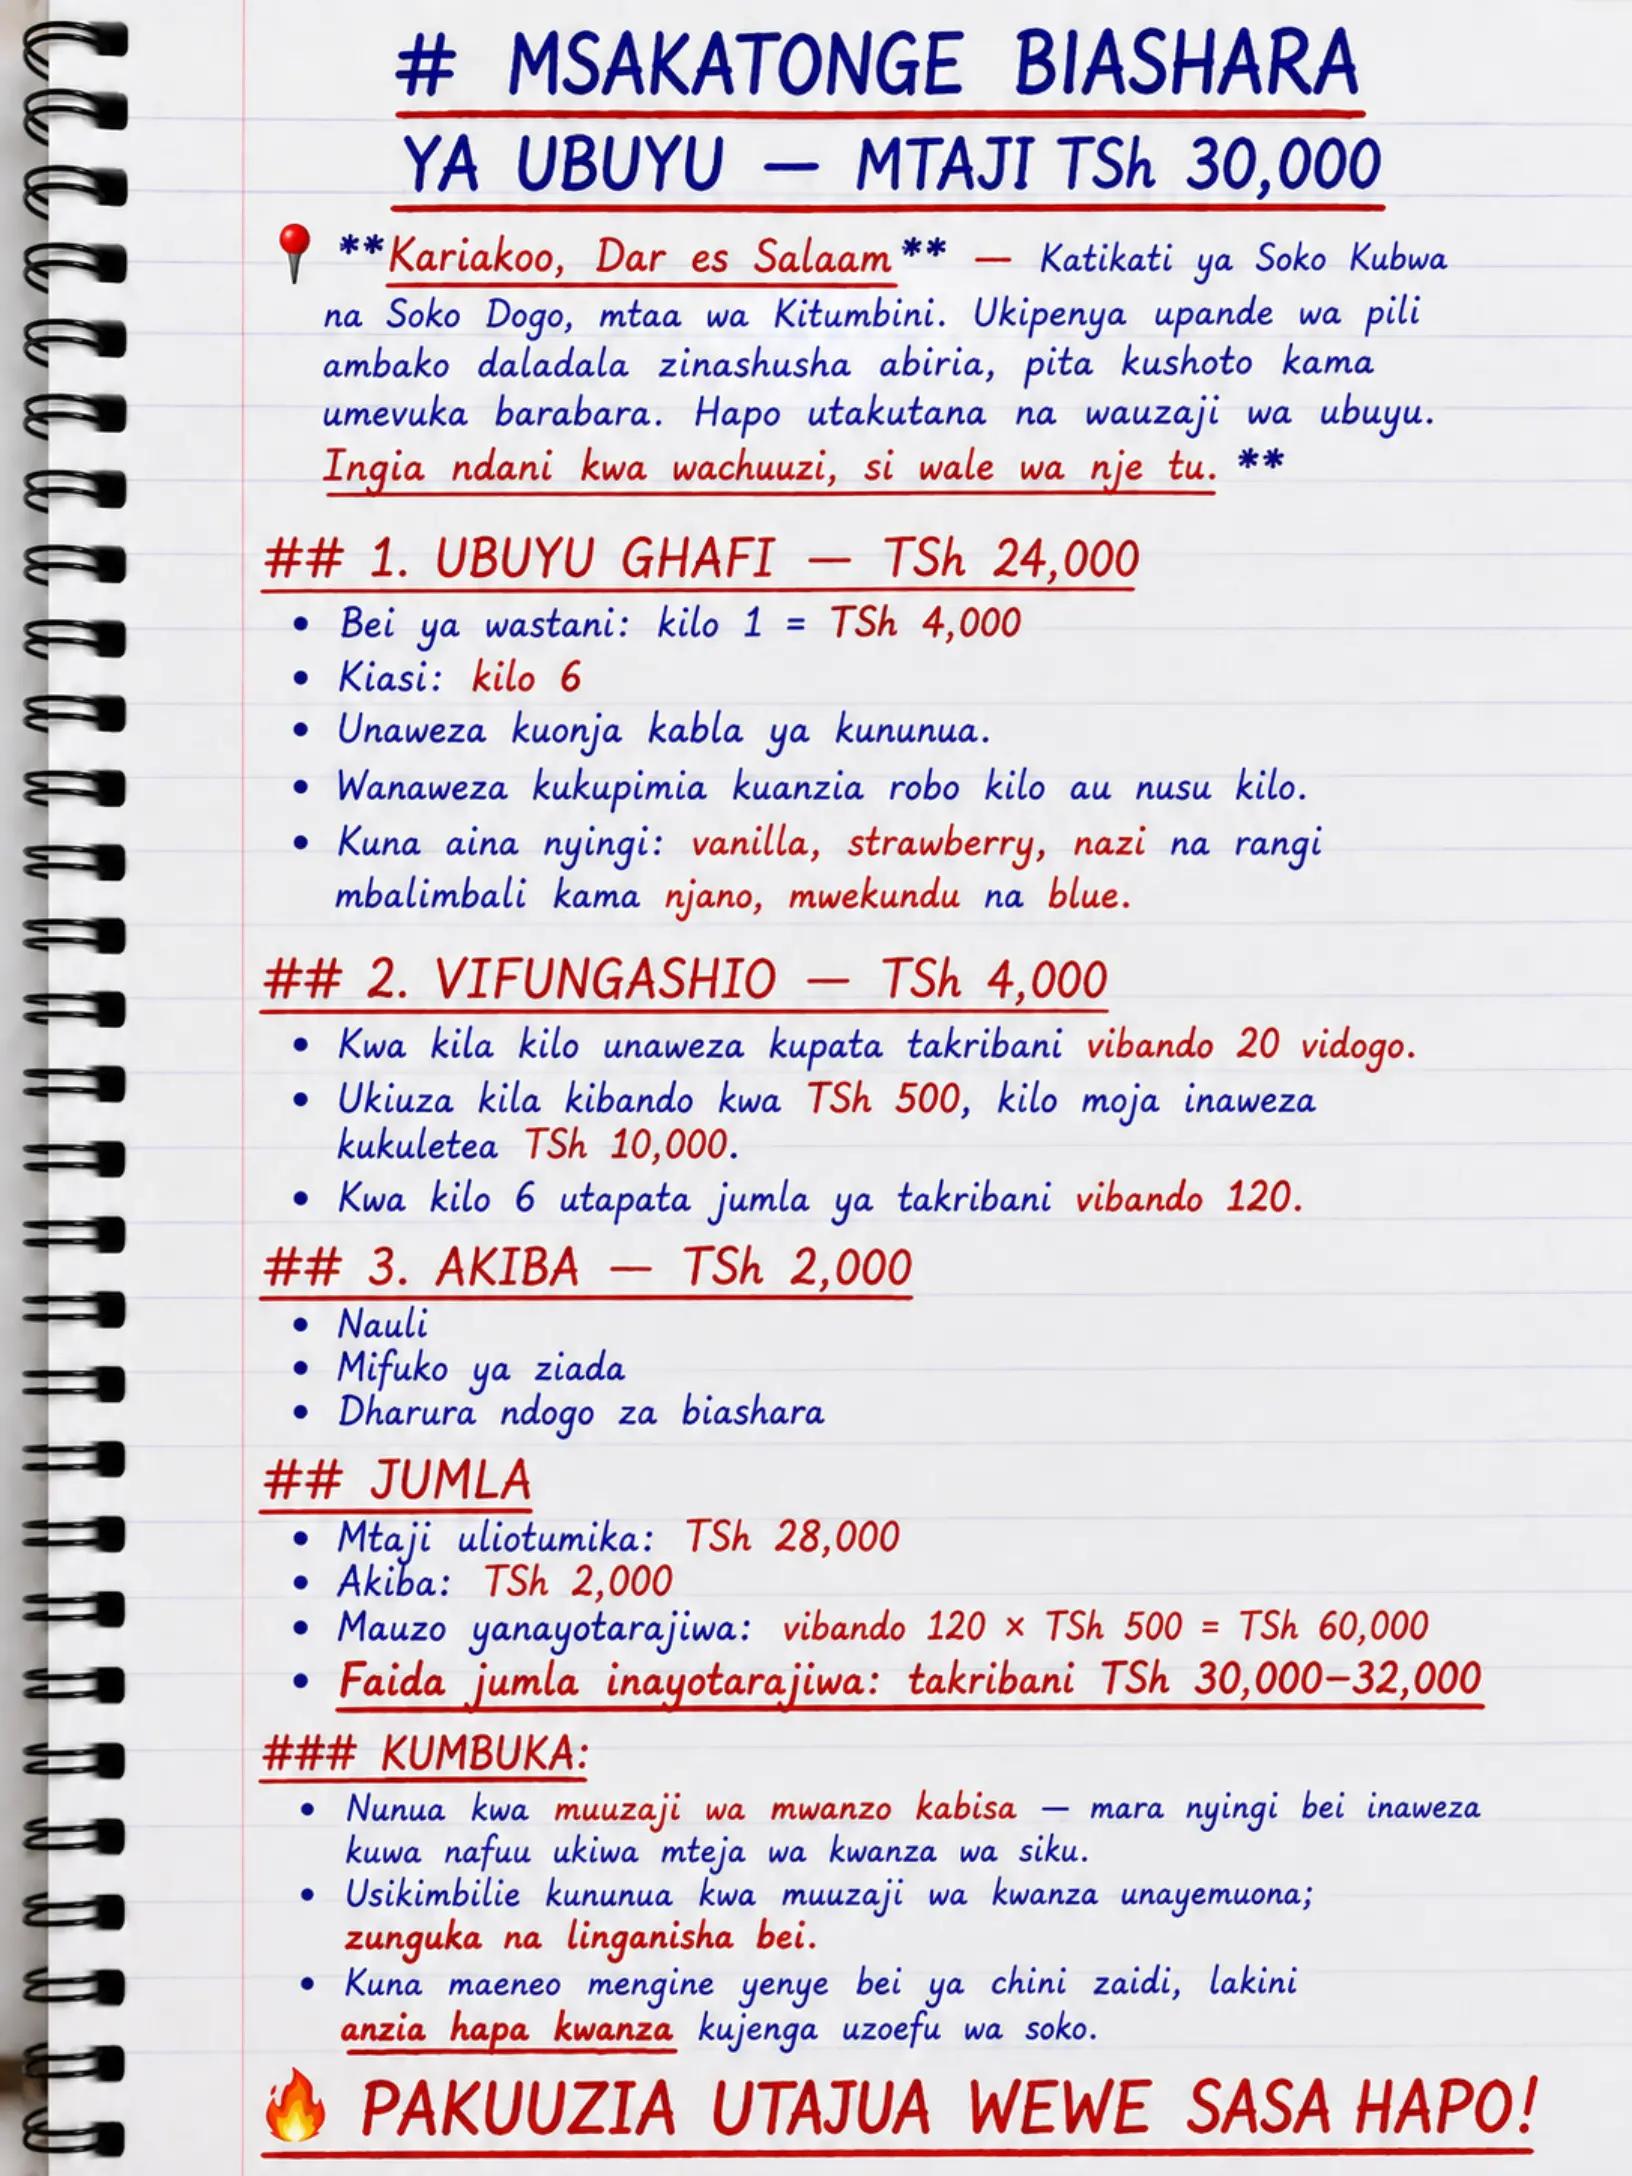 # MSAKATONGE BIASHARA
YA UBUYU — MTAJI TSh 30,000
📍 **Kariakoo, Dar es Salaam** — Katikati ya Soko Kubwa
na Soko Dogo, mtaa wa Kitumbini. Ukipenya upande wa pili
ambako daladala zinashusha abiria, pita kushoto kama
umevuka barabara. Hapo utakutana na wauzaji wa ubuyu.
Ingia ndani kwa wachuuzi, si wale wa nje tu. **
## 1. UBUYU GHAFI — TSh 24,000
• Bei ya wastani: kilo 1 = TSh 4,000
• Kiasi: kilo 6
• Unaweza kuonja kabla ya kununua.
• Wanaweza kukupimia kuanzia robo kilo au nusu kilo.
• Kuna aina nyingi: vanilla, strawberry, nazi na rangi
mbalimbali kama njano, mwekundu na blue.
## 2. VIFUNGASHIO — TSh 4,000
• Kwa kila kilo unaweza kupata takribani vibando 20 vidogo.
• Ukiuza kila kibando kwa TSh 500, kilo moja inaweza
kukuletea TSh 10,000.
• Kwa kilo 6 utapata jumla ya takribani vibando 120.
## 3. AKIBA — TSh 2,000
• Nauli
• Mifuko ya ziada
• Dharura ndogo za biashara
## JUMLA
• Mtaji uliotumika: TSh 28,000
• Akiba: TSh 2,000
• Mauzo yanayotarajiwa: vibando 120 × TSh 500 = TSh 60,000
• Faida jumla inayotarajiwa: takribani TSh 30,000–32,000
### KUMBUKA:
• Nunua kwa muuzaji wa mwanzo kabisa — mara nyingi bei inaweza
kuwa nafuu ukiwa mteja wa kwanza wa siku.
• Usikimbilie kununua kwa muuzaji wa kwanza unayemuona;
zunguka na linganisha bei.
• Kuna maeneo mengine yenye bei ya chini zaidi, lakini
anzia hapa kwanza kujenga uzoefu wa soko.
🔥 PAKUUZIA UTAJUA WEWE SASA HAPO!